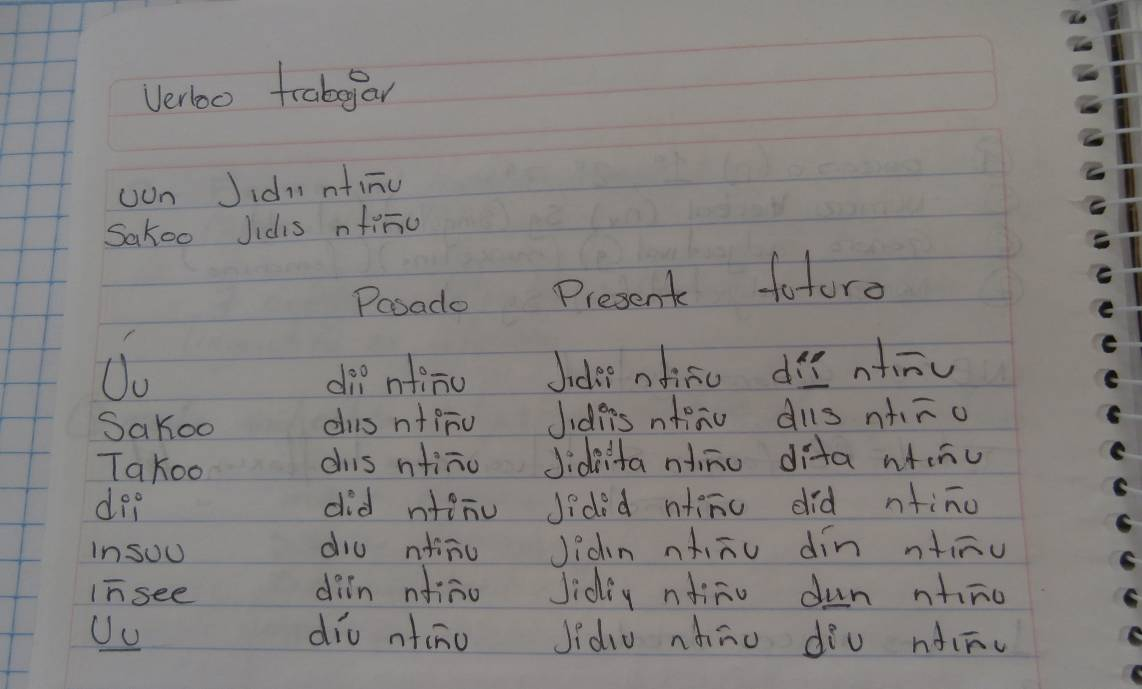 Verbo trabajar
uun Jidii ntiñu
Sakoo Jidis ntiñu
Pasado Presente futuro
Úu dii ntiñu Jidii ntiñu díí ntiñu
Sakoo diis ntiñu Jidiis ntiñu diis ntiñu
Takoo diis ntiñu Jidiita ntiñu díta ntiñu
dii did ntiñu Jidid ntiñu díd ntiñu
insuu diu ntiñu Jidin ntiñu dín ntiñu
iñsee diin ntiñu Jidiy ntiñu ntiñu
Uu díu ntiñu Jidiu ntiñu diu ntiñu